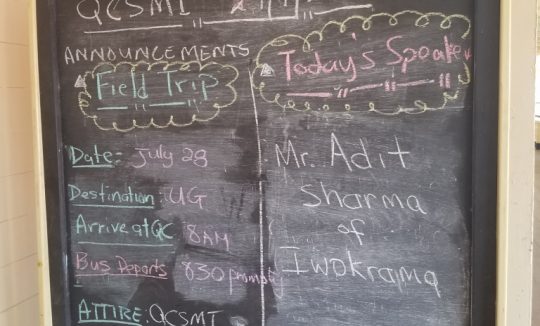 QCSMT
ANNOUNCEMENTS
Field Trip
Date: July 28
Destination: UG
Arrive at QC 8AM
Bus Departs 830 promptly
ATTIRE: QCSMT
Today's Speaker
Mr. Adit
Sharma
of
Iwokrama